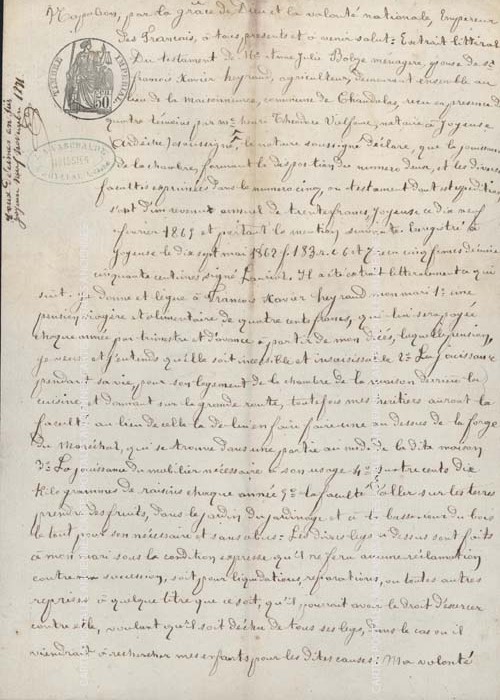 Napoléon, par la grâce de Dieu et la volonté nationale, Empereur
des Français, à tous présents et à venir salut: Extrait littéral
Du testament de Me Anne Julie Bobze menagère, épouse de Sr
François Xavier heyraud, agriculteur, demeurant ensemble au
lieu de la Maisonneuve, commune de Chandolas, reçu en présence de
quatre témoins, par Me henri Théodore Valfons, notaire à Joyeuse
Ardèche, soussigné, le notaire soussigné déclare, que la jouissance
de la chambre, formant la disposition du numero deux, et les diverses
facultés exprimées dans le numero cinq, du testament dont expédition,
sont d'un revenu annuel de trente francs, Joyeuse ce dix neuf
février 1865 et portant la mention suivante. Enregistré à
Joyeuse le dix sept mai 1862 f. 183. r. c. 6 et 7. reçu cinq francs décime
cinquante centimes signé Il a été extrait litteralement ce qui
suit. Je donne et lègue à François Xavier heyraud mon mari 1° une
pension viagère et alimentaire de quatre cents francs, qui lui sera payée
chaque année par trimestre et d'avance à partir de mon décès, laquelle pension,
je veux et j'entends qu'elle soit incessible et insaisissable 2° La Jouissance
pendant sa vie, pour son logement de la chambre de la maison derrière la
cuisine et donnant sur la grande route, toutefois mes héritiers auront la
faculté au lieu de celle-là de lui en faire faire une au dessus de la forge
du Maréchal, qui se trouve dans une partie au midi de la dite maison
3° La jouissance du mobilier nécessaire à son usage 4° quatre cents dix
Kilogrammes de raisins chaque année 5° la faculté d'aller sur les terres
prendre des fruits, dans le jardin du jardinage et à la basse-cour du bois
le tout pour son nécessaire et sans abus: Les divers legs ci dessus sont faits
à mon mari sous la condition expresse, qu'il ne fera aucune réclamation
contre ma succession, soit pour liquidations, réparations, ou toutes autres
reprises à quelque titre que ce soit, qu'il pourrait avoir le droit d'exercer
contre elle, voulant qu'il soit déchu de tous ses legs, dans le cas où il
viendrait à rechercher mes enfants pour les dites causes: Ma volonté
TIMBRE IMPERIAL
50